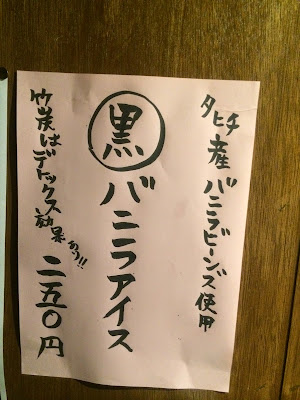 タヒチ産バニラビーンズ使用
黒バニラアイス
竹炭はデトックス効果あり!!
二五〇円